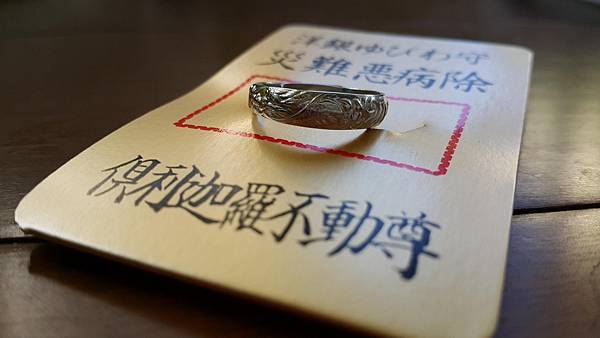 洋銀ゆびわ守
災難悪病除
倶利迦羅不動尊